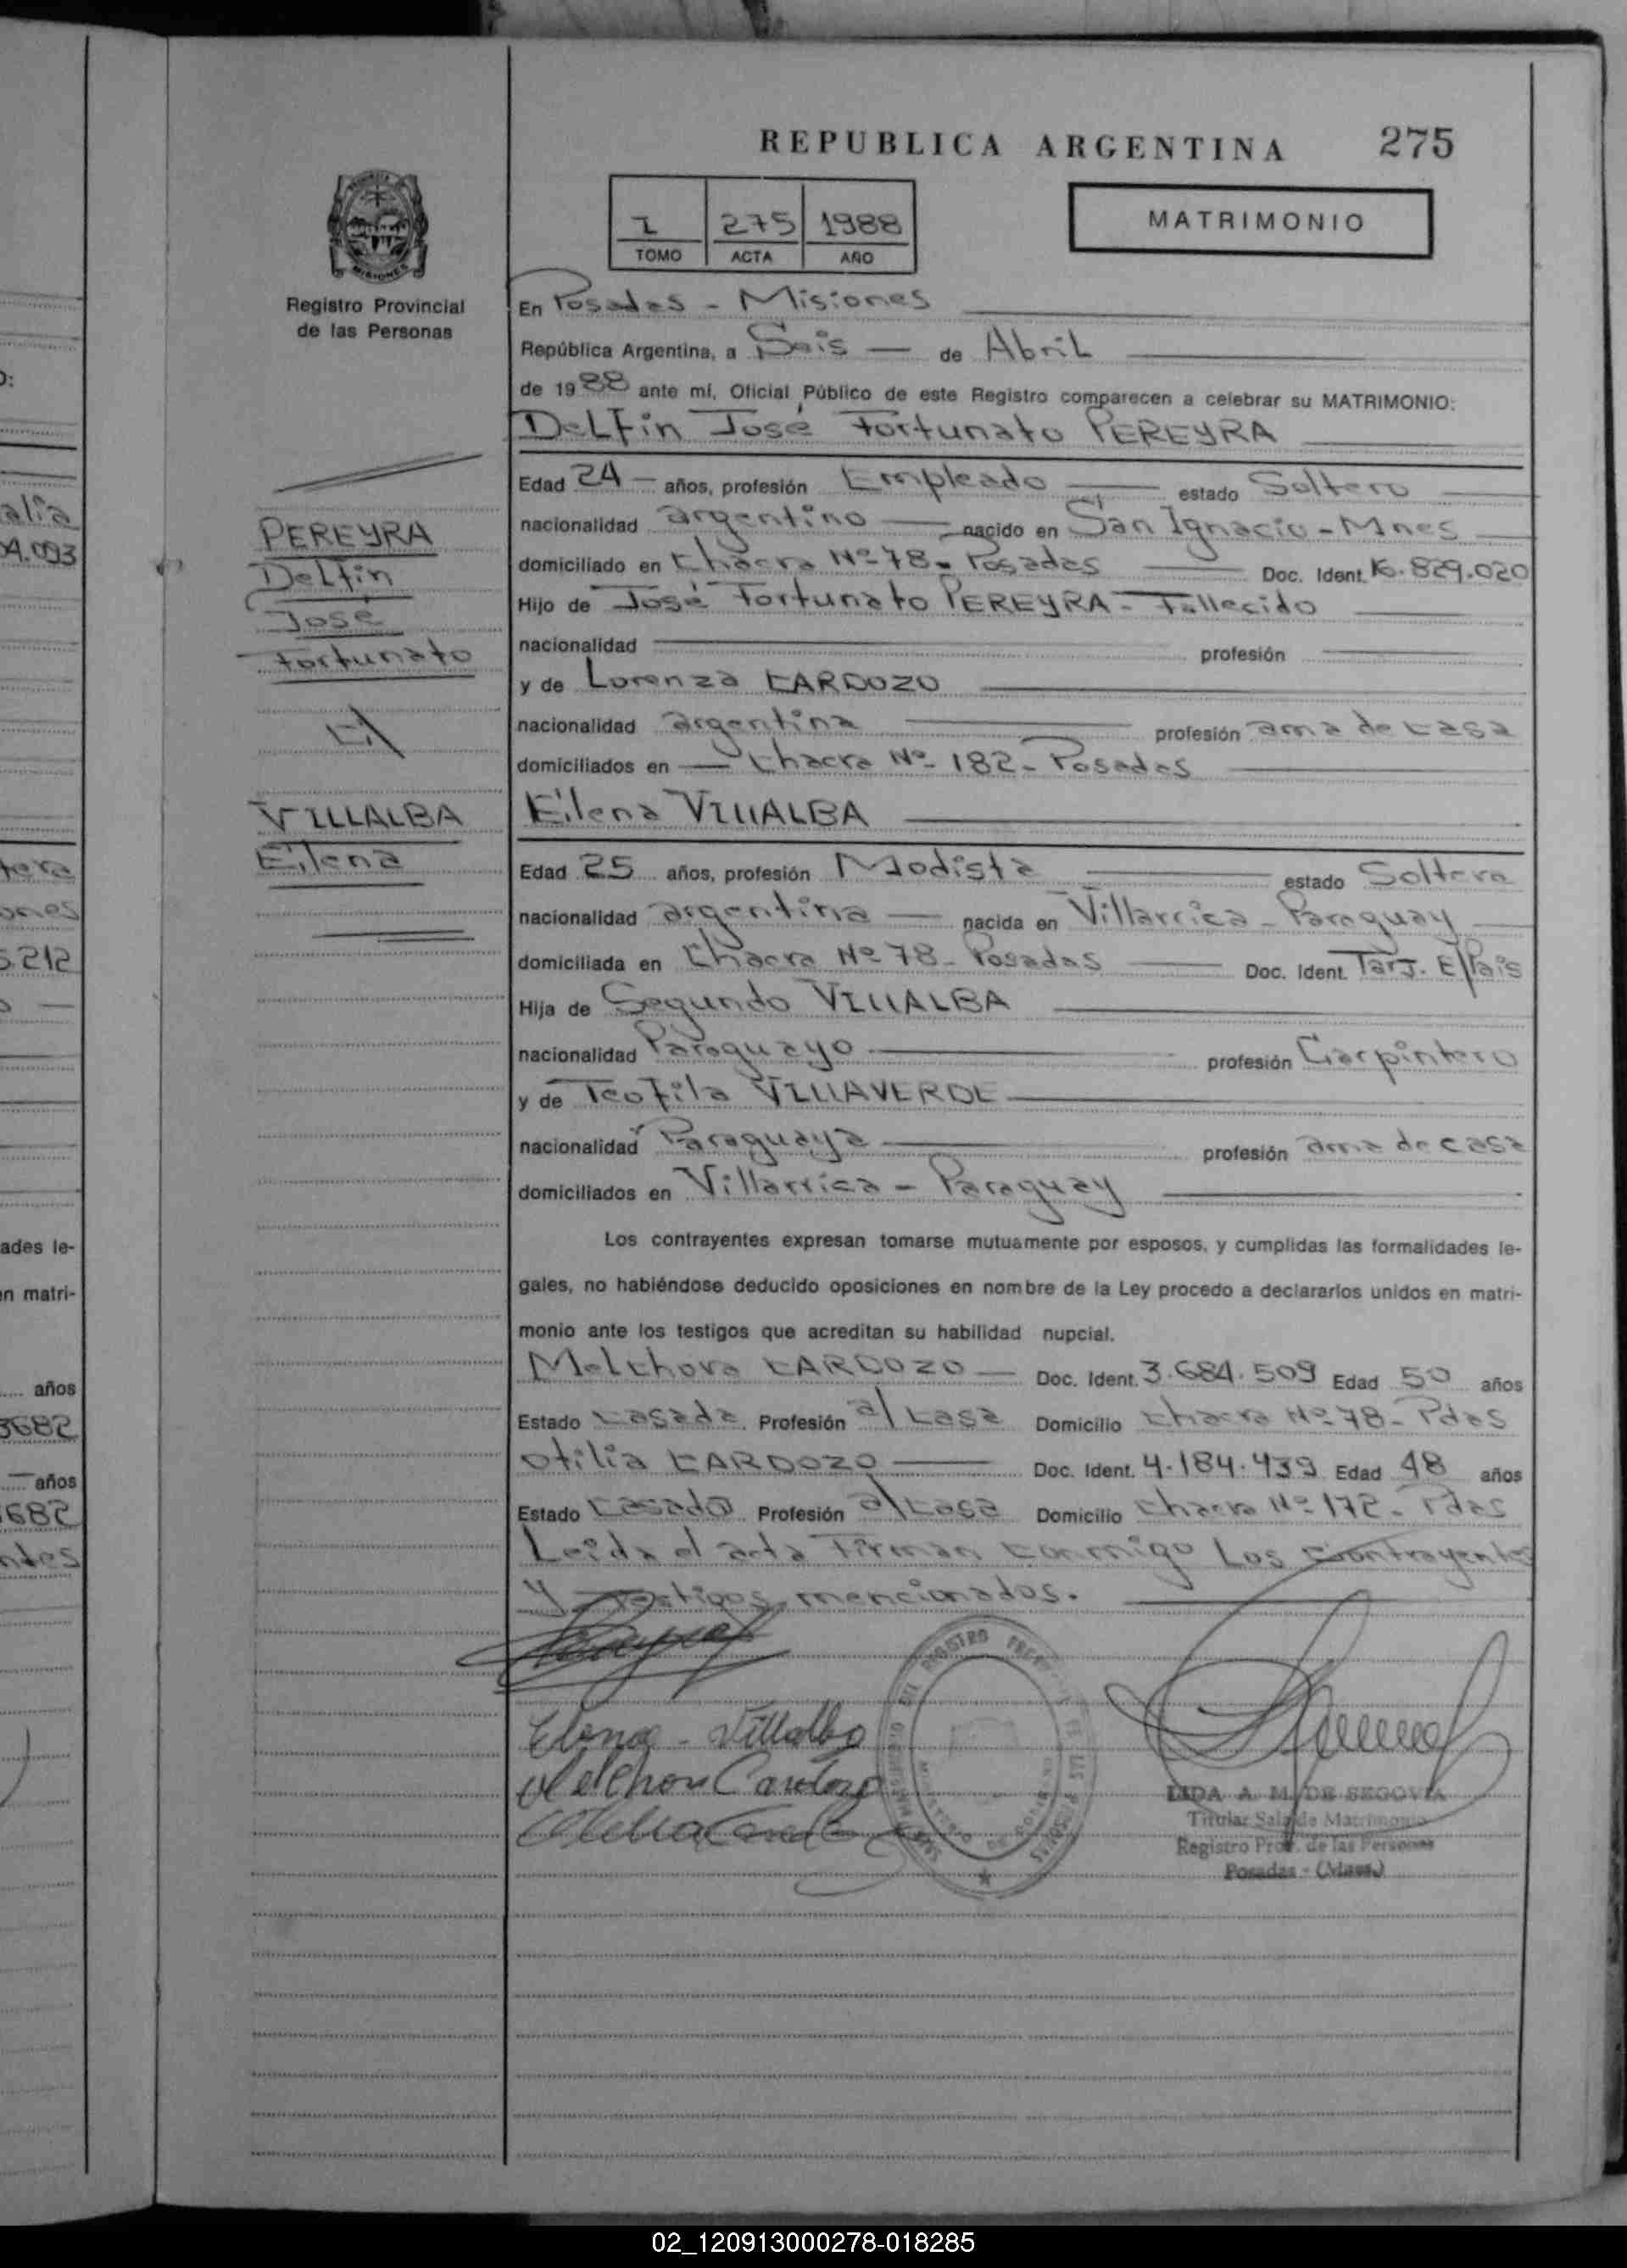 REPUBLICA ARGENTINA 275
I 275 1988
TOMO ACTA AÑO
MATRIMONIO
MISIONES
Registro Provincial
de las Personas
En Posadas - Misiones
República Argentina, a Seis de Abril
de 1988 ante mí, Oficial Público de este Registro comparecen a celebrar su MATRIMONIO:
Delfin José Fortunato PEREYRA
Edad 24 años, profesión Empleado estado Soltero
nacionalidad argentino nacido en San Ignacio - Mnes
domiciliado en Chacra Nº 78 - Posadas Doc. Ident. 16.829.020
Hijo de José Fortunato PEREYRA - Fallecido
nacionalidad profesión
y de Lorenza CARDOZO
nacionalidad argentina profesión ama de casa
domiciliados en Chacra Nº 182 - Posadas
Eilena VILLALBA
Edad 25 años, profesión Modista estado Soltera
nacionalidad argentina nacida en Villarrica - Paraguay
domiciliada en Chacra Nº 78 - Posadas Doc. Ident. Tarj. E/Pais
Hija de Segundo VILLALBA
nacionalidad Paraguayo profesión Carpintero
y de Teofila VILLAVERDE
nacionalidad Paraguaya profesión ama de casa
domiciliados en Villarrica - Paraguay
Los contrayentes expresan tomarse mutuamente por esposos, y cumplidas las formalidades le-
gales, no habiéndose deducido oposiciones en nombre de la Ley procedo a declararlos unidos en matri-
monio ante los testigos que acreditan su habilidad nupcial.
Melchora CARDOZO Doc. Ident. 3.684.509 Edad 50 años
Estado Casada Profesión a/casa Domicilio Chacra Nº 78 - Pdas
Otilia CARDOZO Doc. Ident. 4.184.439 Edad 48 años
Estado Casada Profesión a/casa Domicilio Chacra Nº 172 - Pdas
Leida el acta Firman conmigo Los Contrayentes
y testigos mencionados.
Elena - Villalba
Melchora Cardozo
LIDA A. M. DE SEGOVIA
Titular Sala de Matrimonio
Registro Prov. de las Personas
Posadas - (Mnes.)
PEREYRA
Delfin
José
Fortunato
c/
VILLALBA
Eilena
alia
04.093
tera
ones
5.212
ades le-
en matri-
años
3682
años
682
ntes
02_120913000278-018285